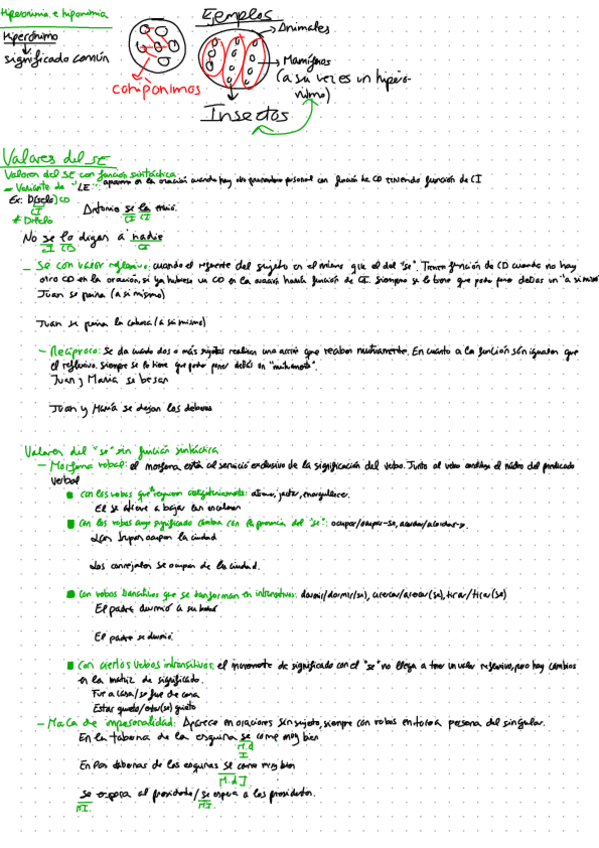 Hiperonimia e hiponimia
Hiperónimo
significado común
cohipónimos
Ejemplos
Animales
Mamíferos
(a su vez es un hiperónimo)
Insectos
Valores del SE
Valores del SE con función sintáctica
- Variante de "LE": aparece en la oración cuando hay un pronombre personal con función de CD teniendo función de CI
Ex: Díselo CD
CI
≠ Dítelo
Antonio se la envió.
CI CD
No se lo digas a nadie
CI CD CI
- Se con valor reflexivo: cuando el referente del sujeto es el mismo que el del "se". Tienen función de CD cuando no hay
otro CD en la oración, si ya hubiese un CD en la oración haría función de CI. Siempre se le tiene que poder poner detrás un "a sí mismo"
Juan se peina (a sí mismo)
Juan se peina la cabeza (a sí mismo)
- Recíproco: Se da cuando dos o más sujetos realizan una acción que reciben mutuamente. En cuanto a la función son iguales que
el reflexivo. Siempre se le tiene que poder poner detrás un "mutuamente".
Juan y María se besan
Juan y María se dejan los deberes
Valores del "se" sin función sintáctica
- Morfema verbal: el morfema está al servicio exclusivo de la significación del verbo. Junto al verbo constituye el núcleo del predicado
verbal
con los verbos que requieren obligatoriamente:
Él se atreve a bajar las escaleras
Con los verbos cuyo significado cambia con la presencia del "se": ocupar/ocupar-se, acordar/acordar-se.
ocupan la ciudad
Los concejales se ocupan de la ciudad.
Con verbos transitivos que se transforman en intransitivos: dormir/dormir(se), acercar/acercar(se), tirar/tirar(se)
El padre durmió a su bebé
El padre se durmió
Con ciertos verbos intransitivos: el incremento de significado con el "se" no llega a tener un valor reflexivo, pero hay cambios
en la matriz de significado.
Fue a casa/se fue de casa
Estar quieto/estar(se) quieto
- Marca de impersonalidad: Aparece en oraciones sin sujeto, siempre con verbos en tercera persona del singular.
En la taberna de la esquina se come muy bien
M.d
I
En las tabernas de las esquinas se come muy bien
M.d I
Se espera al presidente/se espera a los presidentes.
MI. MI.